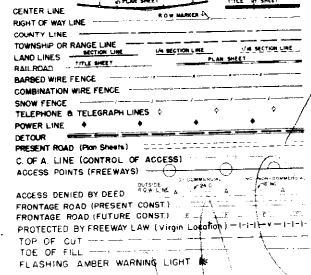 PLAN SHEET TITLE SHEET
CENTER LINE
RIGHT OF WAY LINE ROW MARKER
COUNTY LINE
TOWNSHIP OR RANGE LINE
LAND LINES SECTION LINE 1/4 SECTION LINE 1/16 SECTION LINE
RAILROAD TITLE SHEET PLAN SHEET
BARBED WIRE FENCE
COMBINATION WIRE FENCE
SNOW FENCE
TELEPHONE & TELEGRAPH LINES
POWER LINE
DETOUR
PRESENT ROAD (Plan Sheets)
C. OF A. LINE (CONTROL OF ACCESS)
ACCESS POINTS (FREEWAYS)
COMMERCIAL NON-COMMERCIAL
ACCESS DENIED BY DEED OUTSIDE ROW LINE A A A
FRONTAGE ROAD (PRESENT CONST.)
FRONTAGE ROAD (FUTURE CONST.)
PROTECTED BY FREEWAY LAW (Virgin Location)
TOP OF CUT
TOE OF FILL
FLASHING AMBER WARNING LIGHT